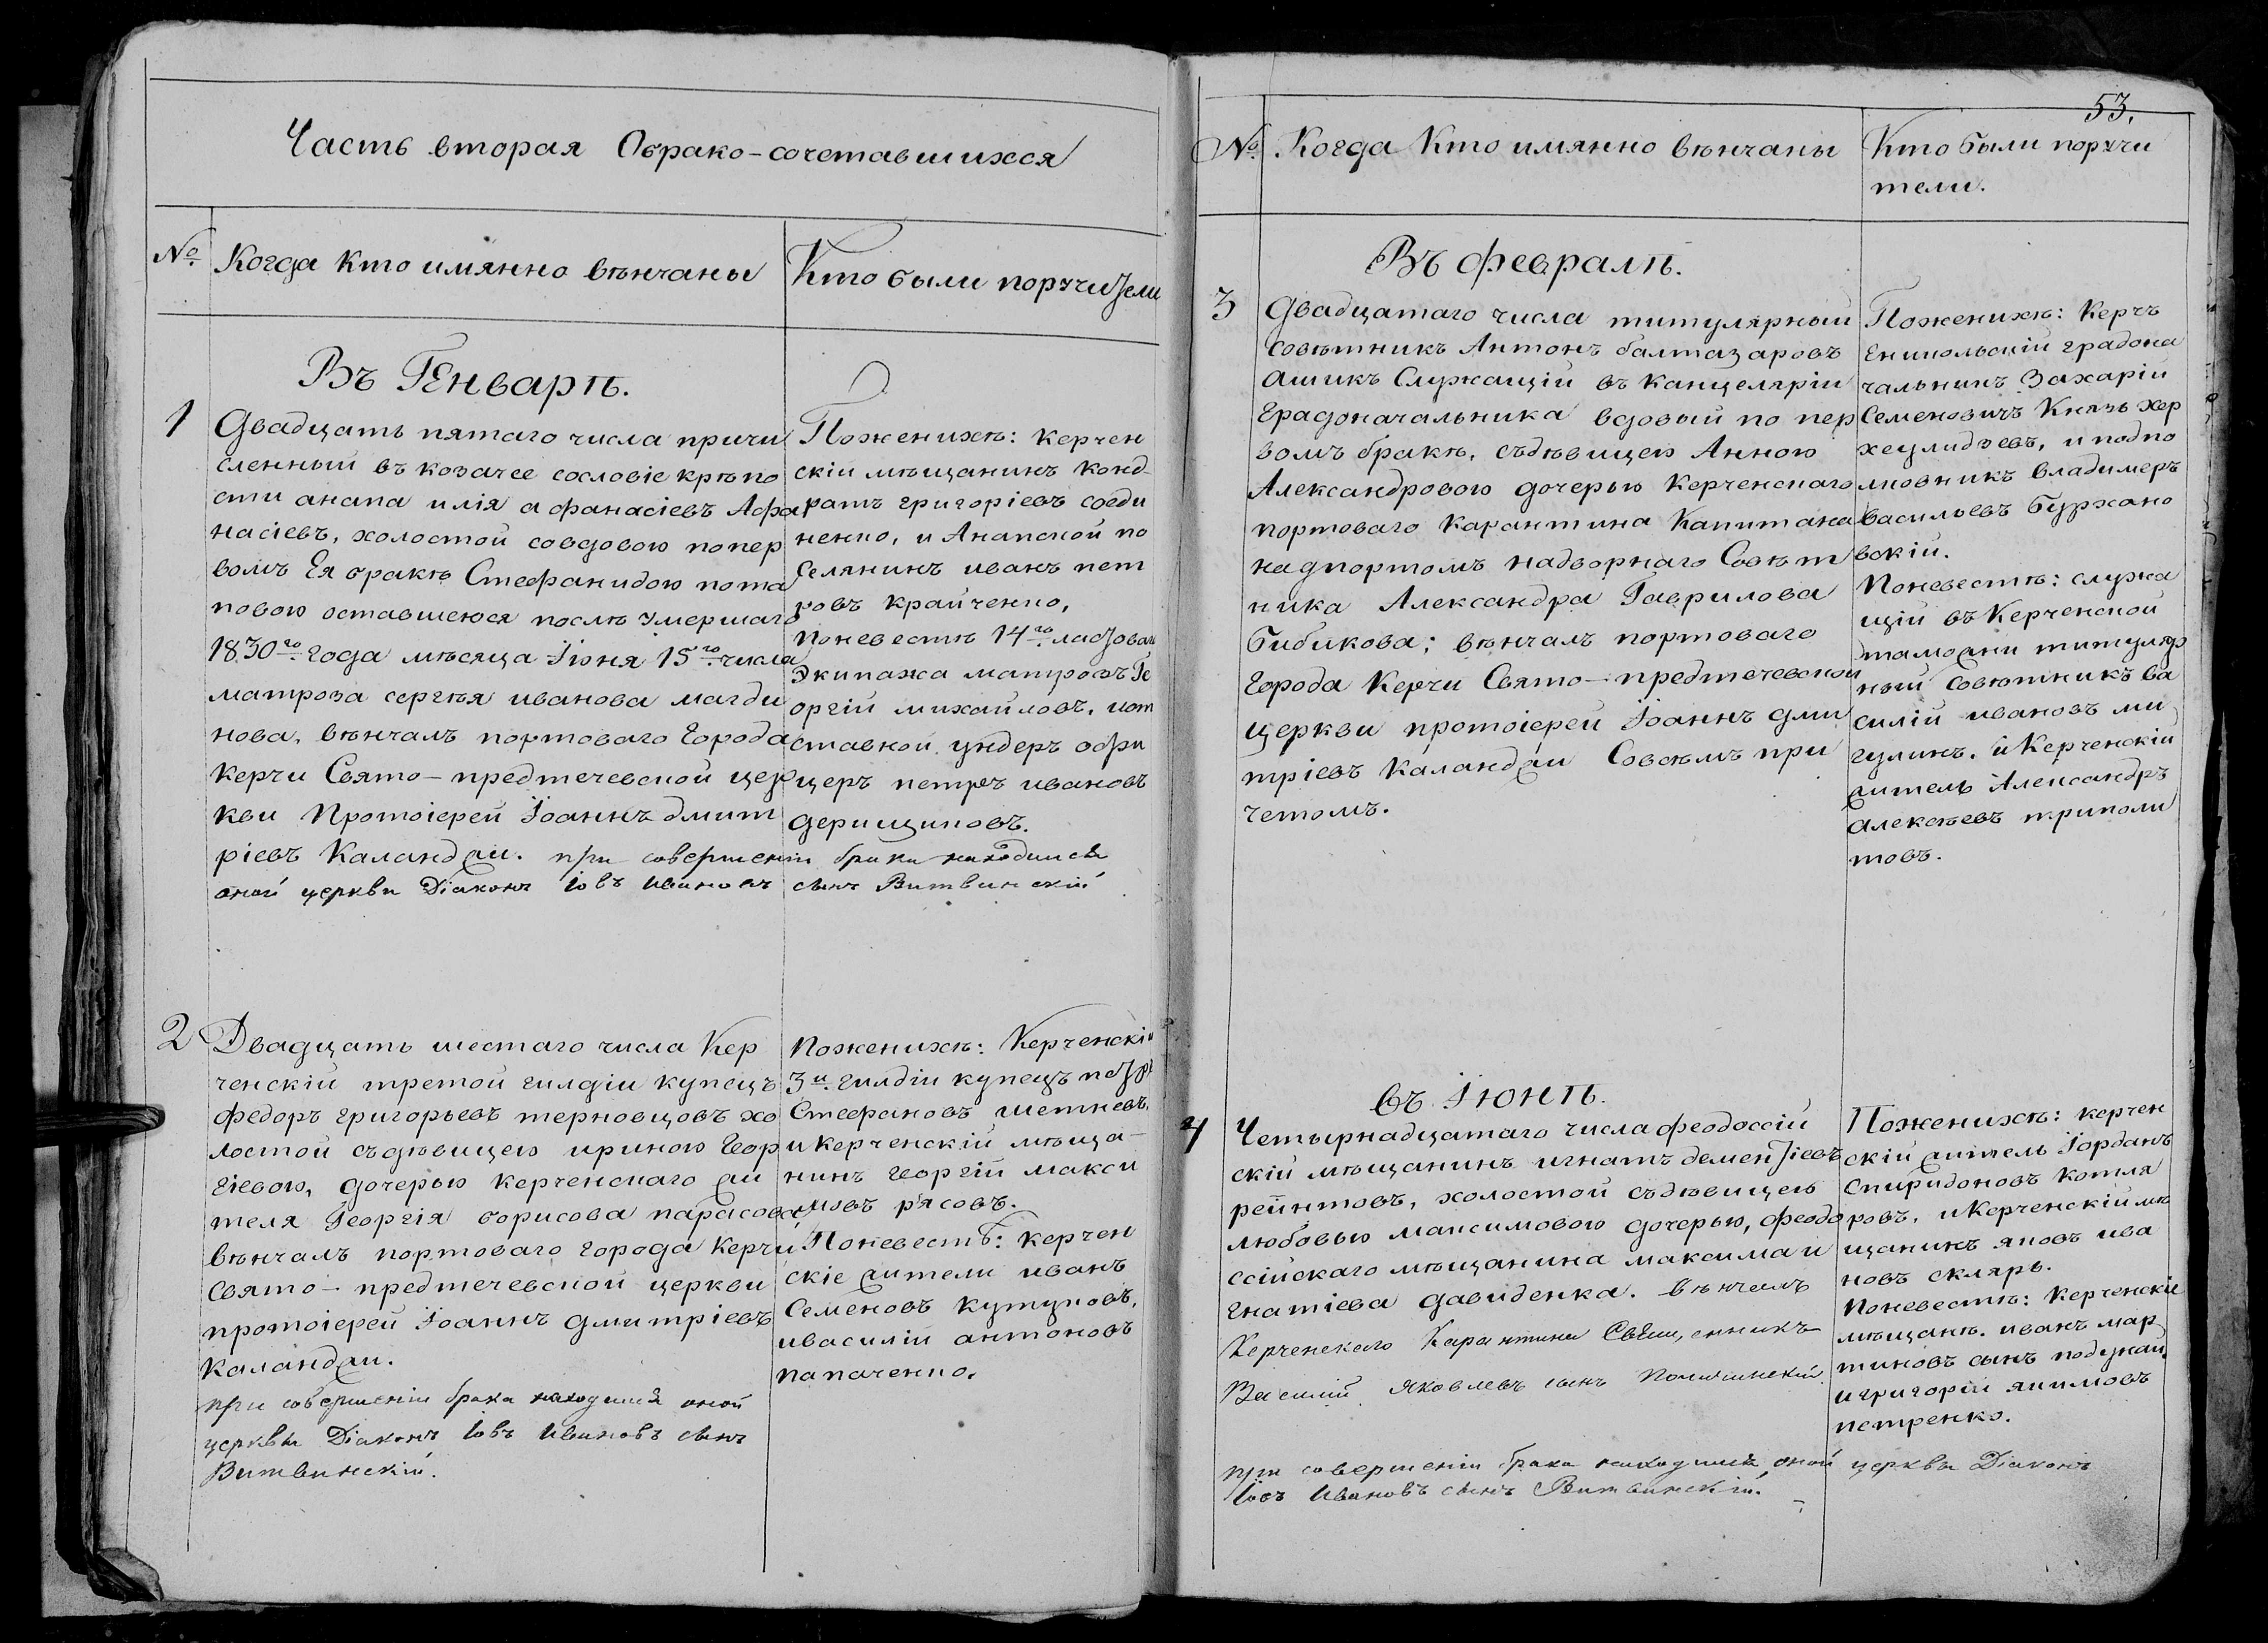 Часть вторая Обрако-сочетавшихся
№ Когда кто имянно вѣнчаны
Кто были поручители
Въ Генварѣ.
1
Двадцать пятаго числа причи
сленный въ козачее сословіе крѣпо
сти анапа илія афанасіевъ Афа
насіевъ, холостой совдовою попер
вомъ Ея бракѣ Стефанидою пота
повою оставшеюся послѣ умершаго
1830го года мѣсяца Іюня 15го числа
матроза сергѣя иванова магди
нова, вѣнчалъ портоваго Города
Керчи Свято-предтечевской цер
кви Протоіерей Іоаннъ дмит
ріевъ Каланджи. при совершеніи брака находился
оной церкви Діаконъ Іовъ Ивановъ сынъ Витвинскій
Поженихѣ: керчен
скіи мѣщанинъ конд
ратъ григоріевъ соеди
ненко, и Анапской по
селянинъ иванъ пет
ровъ крайченко,
поневестѣ 14го ластоваго
Экипажа матрозъ Ге
оргій михайловъ, иот
ставной ундеръ офи
церъ петръ ивановъ
дерищиновъ.
2
Двадцать шестаго числа Кер
ченскій третой гилдіи купецъ
федоръ григорьевъ терновцовъ хо
лостой съдѣвицею ириною Геор
гіевою, дочерью керченскаго жи
теля Георгія борисова парасова,
вѣнчалъ портоваго города Керчи
свято-предтечевской церкви
протоіерей Іоаннъ дмитріевъ
Каланджи.
при совершеніи брака находился оной
церкви Діаконъ Іовъ Ивановъ сынъ
Витвинскій.
Поженихѣ: Керченскій
3й гилдіи купецъ петръ
Стефановъ шетневъ,
и керченскій мѣща-
нинъ георгій макси
мовъ рясовъ.
Поневестѣ: керчен
скіе жители иванъ
Семеновъ кутуповъ,
ивасилій антоновъ
папаченко.
53.
№ Когда Кто имянно вѣнчаны
Кто были поручи
тели.
Въ февралѣ.
3
Двадцатаго числа титулярный
совѣтникъ Антонъ балтазаровъ
Ашикъ Служащій въ канцеляріи
Градоначальника вдовый по пер
вомъ бракѣ, съдѣвицею Анною
Александровою дочерью Керченскаго
портоваго Карантина Капитана
надпортомъ надворнаго Совѣт
ника Александра Гаврилова
Бибикова; вѣнчалъ портоваго
Города Керчи Свято-предтечевской
Церкви протоіерей Іоаннъ дми
тріевъ Каланджи Совсѣмъ при
четомъ.
Поженихѣ: Керчъ
Еникольскій градона
чальникъ Захарій
Семеновичъ Князь хер
хеулидзевъ, и подпо
лковникъ владимеръ
васильевъ Буржано
вскій.
Поневестѣ: служа
щій въ Керченской
таможни титуляр
ный совѣтникъ ва
силій ивановъ ми
гулинъ. и Керченскій
житель Александръ
алексѣевъ триполи
товъ.
въ Іюнѣ.
4
Четырнадцатаго числа феодоссій
скій мѣщанинъ игнатъ дементіевъ
рейнтовъ, холостой съдѣвицею
любовью максимовою дочерью, феодо
ссійскаго мѣщанина максима и
гнатіева давиденка. вѣнчалъ
Керченскаго Карантина Священникъ
Василій Яковлевъ сынъ
при совершеніи брака находился оной церкви Діаконъ
Іовъ Ивановъ сынъ Витвинскій.
Поженихѣ: керчен
скій житель Іорданъ
спиридоновъ котля
ровъ, и Керченскій мѣ
щанинъ яковъ ива
новъ скляръ.
Поневестѣ: Керченскіе
мѣщанѣ. иванъ мар
тиновъ сынъ подузнай,
и григорій якимовъ
петренко.